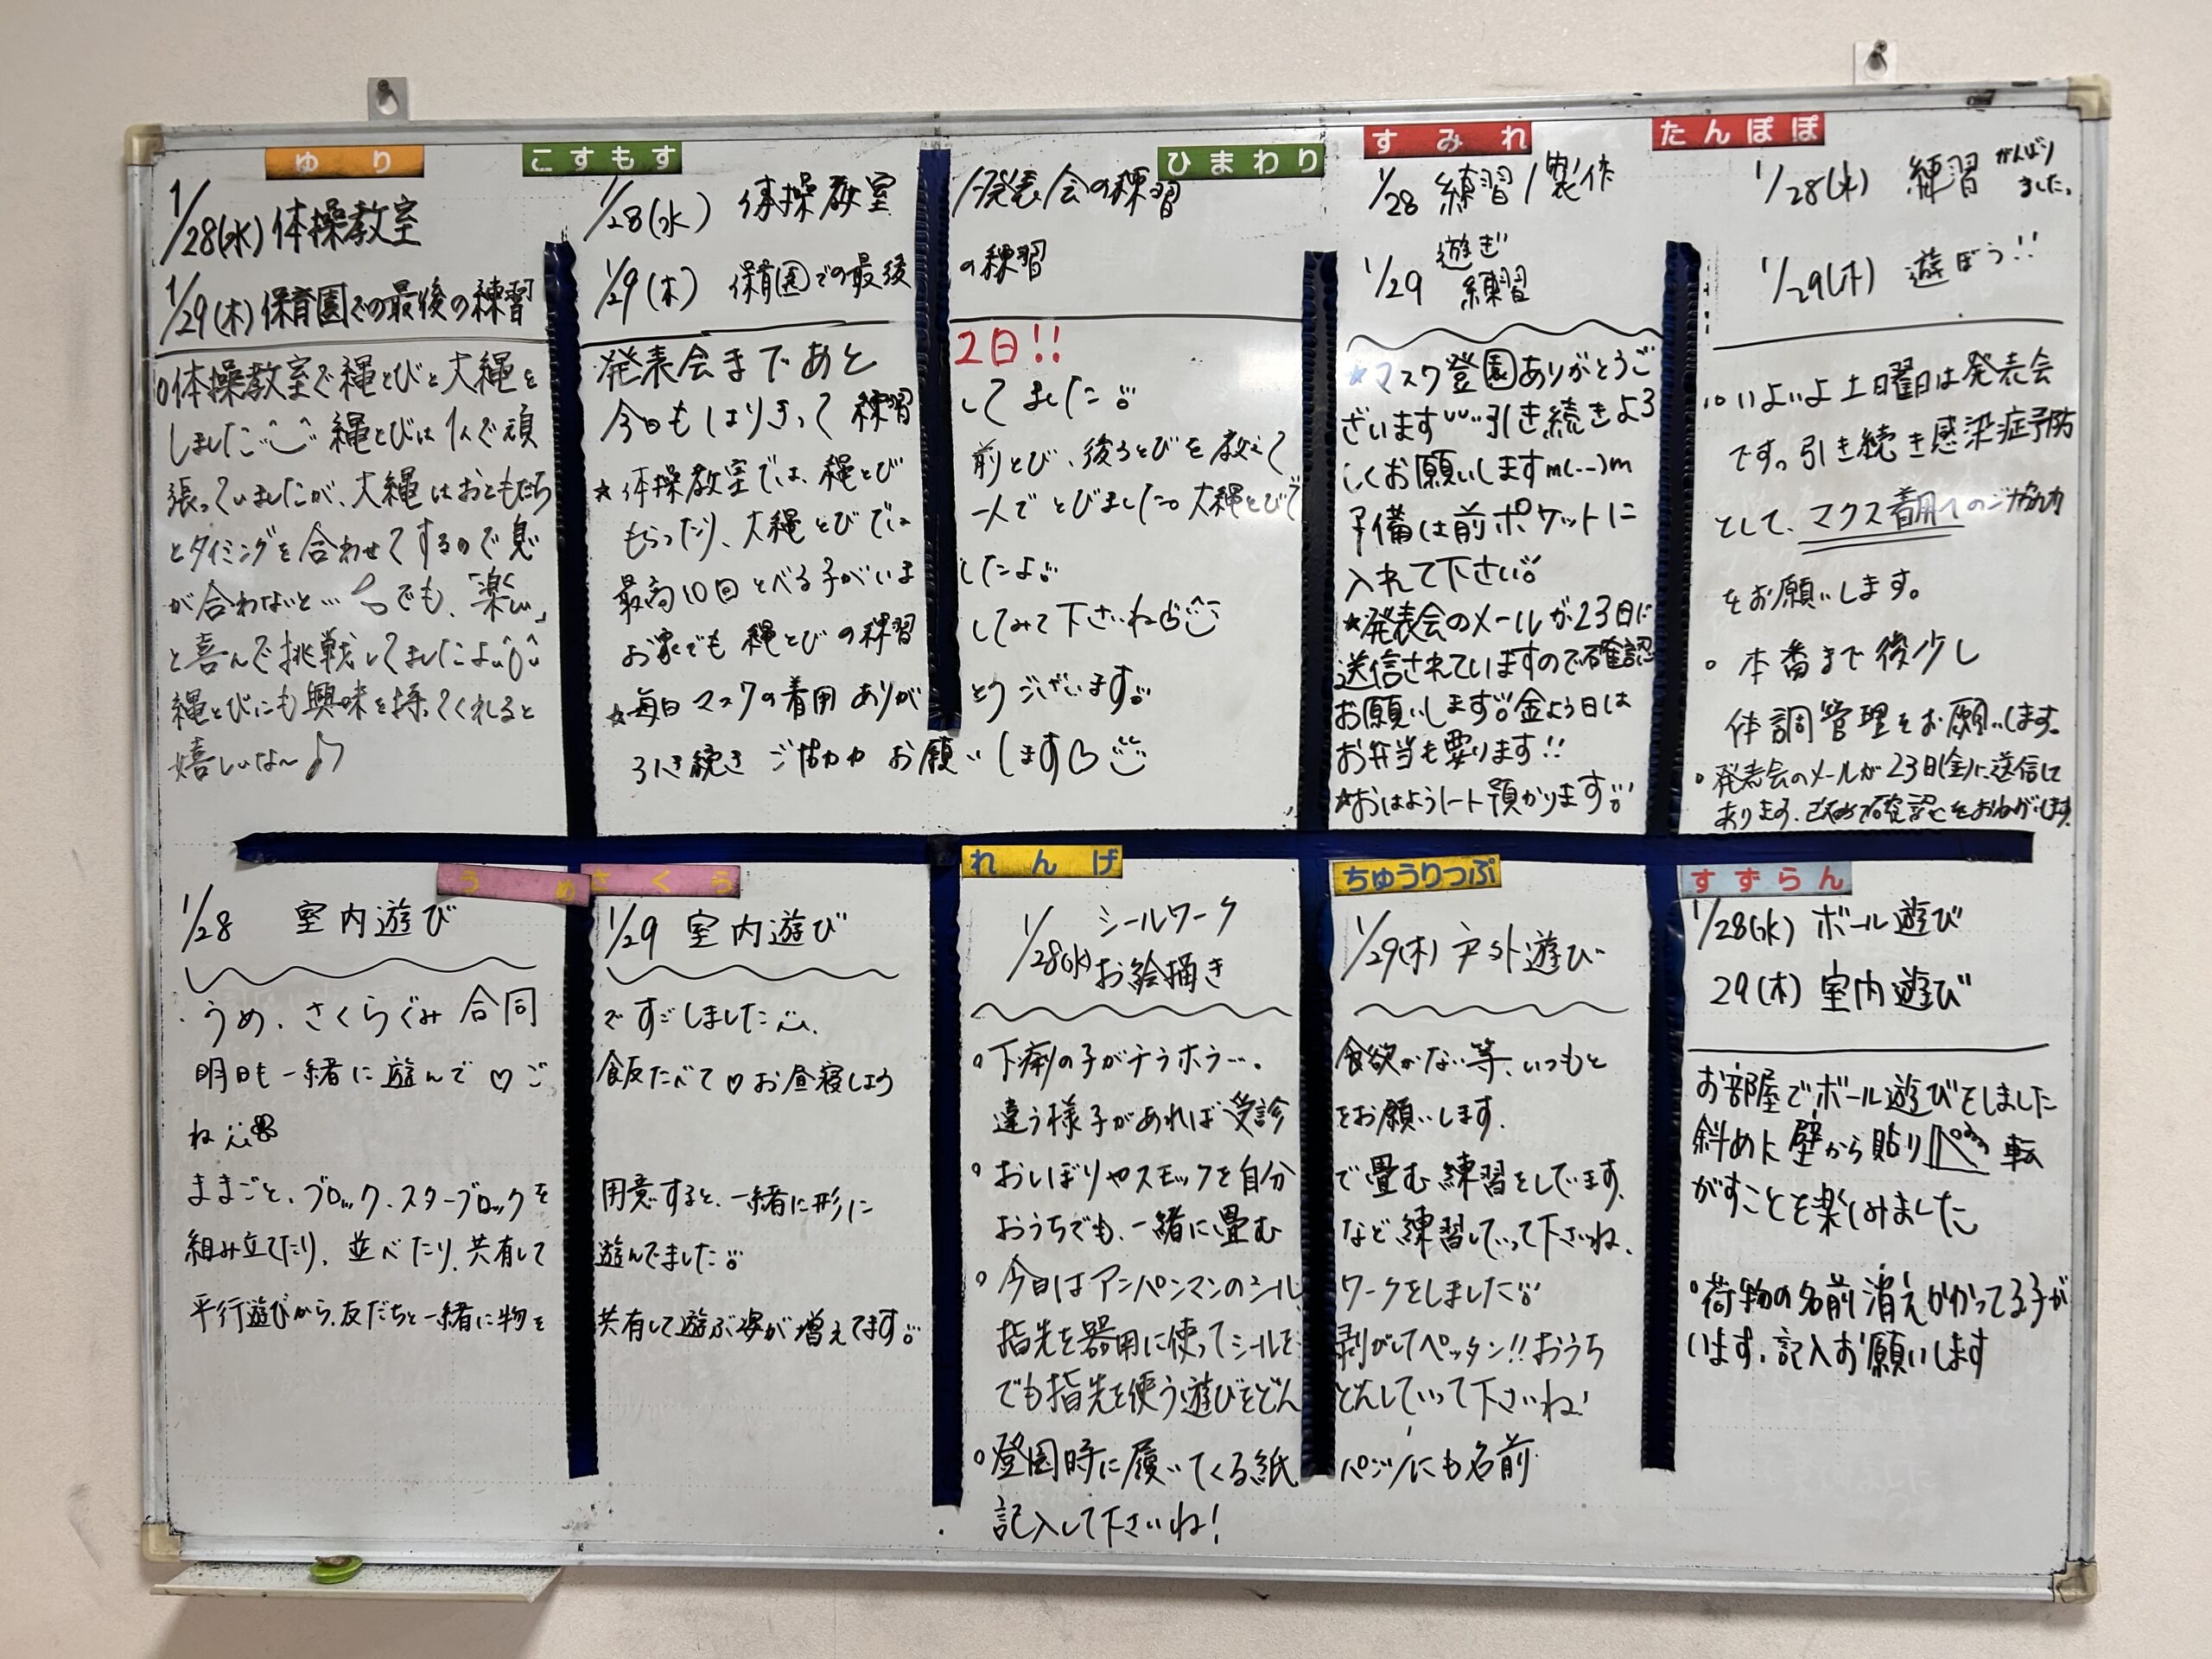 ゆり
1/28(水) 体操教室
1/29(木) 保育園での最後の練習
○体操教室で縄とびと大縄を
しました 縄とびは1人で頑
張っていましたが、大縄はおともだち
とタイミングを合わせてするので息
が合わないと… でも、「楽しい」
と喜んで挑戦してましたよ
縄とびにも興味を持ってくれると
嬉しいな〜♪
こすもす ひまわり
1/28(水) 体操教室 /発表会の練習
1/29(木) 保育園での最後の練習
発表会まであと2日!!
今日もはりきって練習してました
☆体操教室では、縄とび前とび、後ろとびを教えて
もらったり、大縄とびでは一人でとびました。大縄とびで
最高10回とべる子がいましたよ
お家でも縄とびの練習してみて下さいね
☆毎日マスクの着用ありがとうございます
引き続きご協力お願いします
すみれ
1/28 練習/製作
1/29 遊ぎ練習
★マスク登園ありがとうご
ざいます 引き続きよろ
しくお願いしますm(--)m
予備は前ポケットに
入れて下さい
★発表会のメールが23日に
送信されていますので確認
お願いします 金よう日は
お弁当も要ります!!
★おはようノート預かります
たんぽぽ
1/28(水) 練習 がんばりました。
1/29(木) 遊ぼう!!
○いよいよ土曜日は発表会
です。引き続き感染症予防
として、マクス着用へのご協力
をお願いします。
○本番まで後少し
体調管理をお願いします。
○発表会のメールが23日(金)に送信して
あります。確認をおねがいします。
うめ さくら
1/28 室内遊び 1/29 室内遊び
・うめ、さくらぐみ合同ですごしました
明日も一緒に遊んで♡ご飯たべて♡お昼寝しよう
ね
ままごと、ブロック、スターブロックを用意すると、一緒に形に
組み立てたり、並べたり、共有して遊んでました
平行遊びから、友だちと一緒に物を共有して遊ぶ姿が増えてます
れんげ ちゅうりっぷ
1/28(水) シールワーク お絵描き 1/29(木) 戸外遊び
○下痢の子がチラホラ…。食欲がない等、いつもと
違う様子があれば受診をお願いします。
○おしぼりやスモックを自分で畳む練習をしています。
おうちでも、一緒に畳むなど練習していって下さいね。
○今日はアンパンマンのシールワークをしました
指先を器用に使ってシールを剥がしてペッタン!!おうち
でも指先を使う遊びをどんどんしていって下さいね!
○登園時に履いてくる紙パンツにも名前
記入して下さいね!
すずらん
1/28(水) ボール遊び
29(木) 室内遊び
お部屋でボール遊びをしました
斜めに壁から貼り 転
がすことを楽しみました
○荷物の名前消えかかってる子が
います。記入お願いします